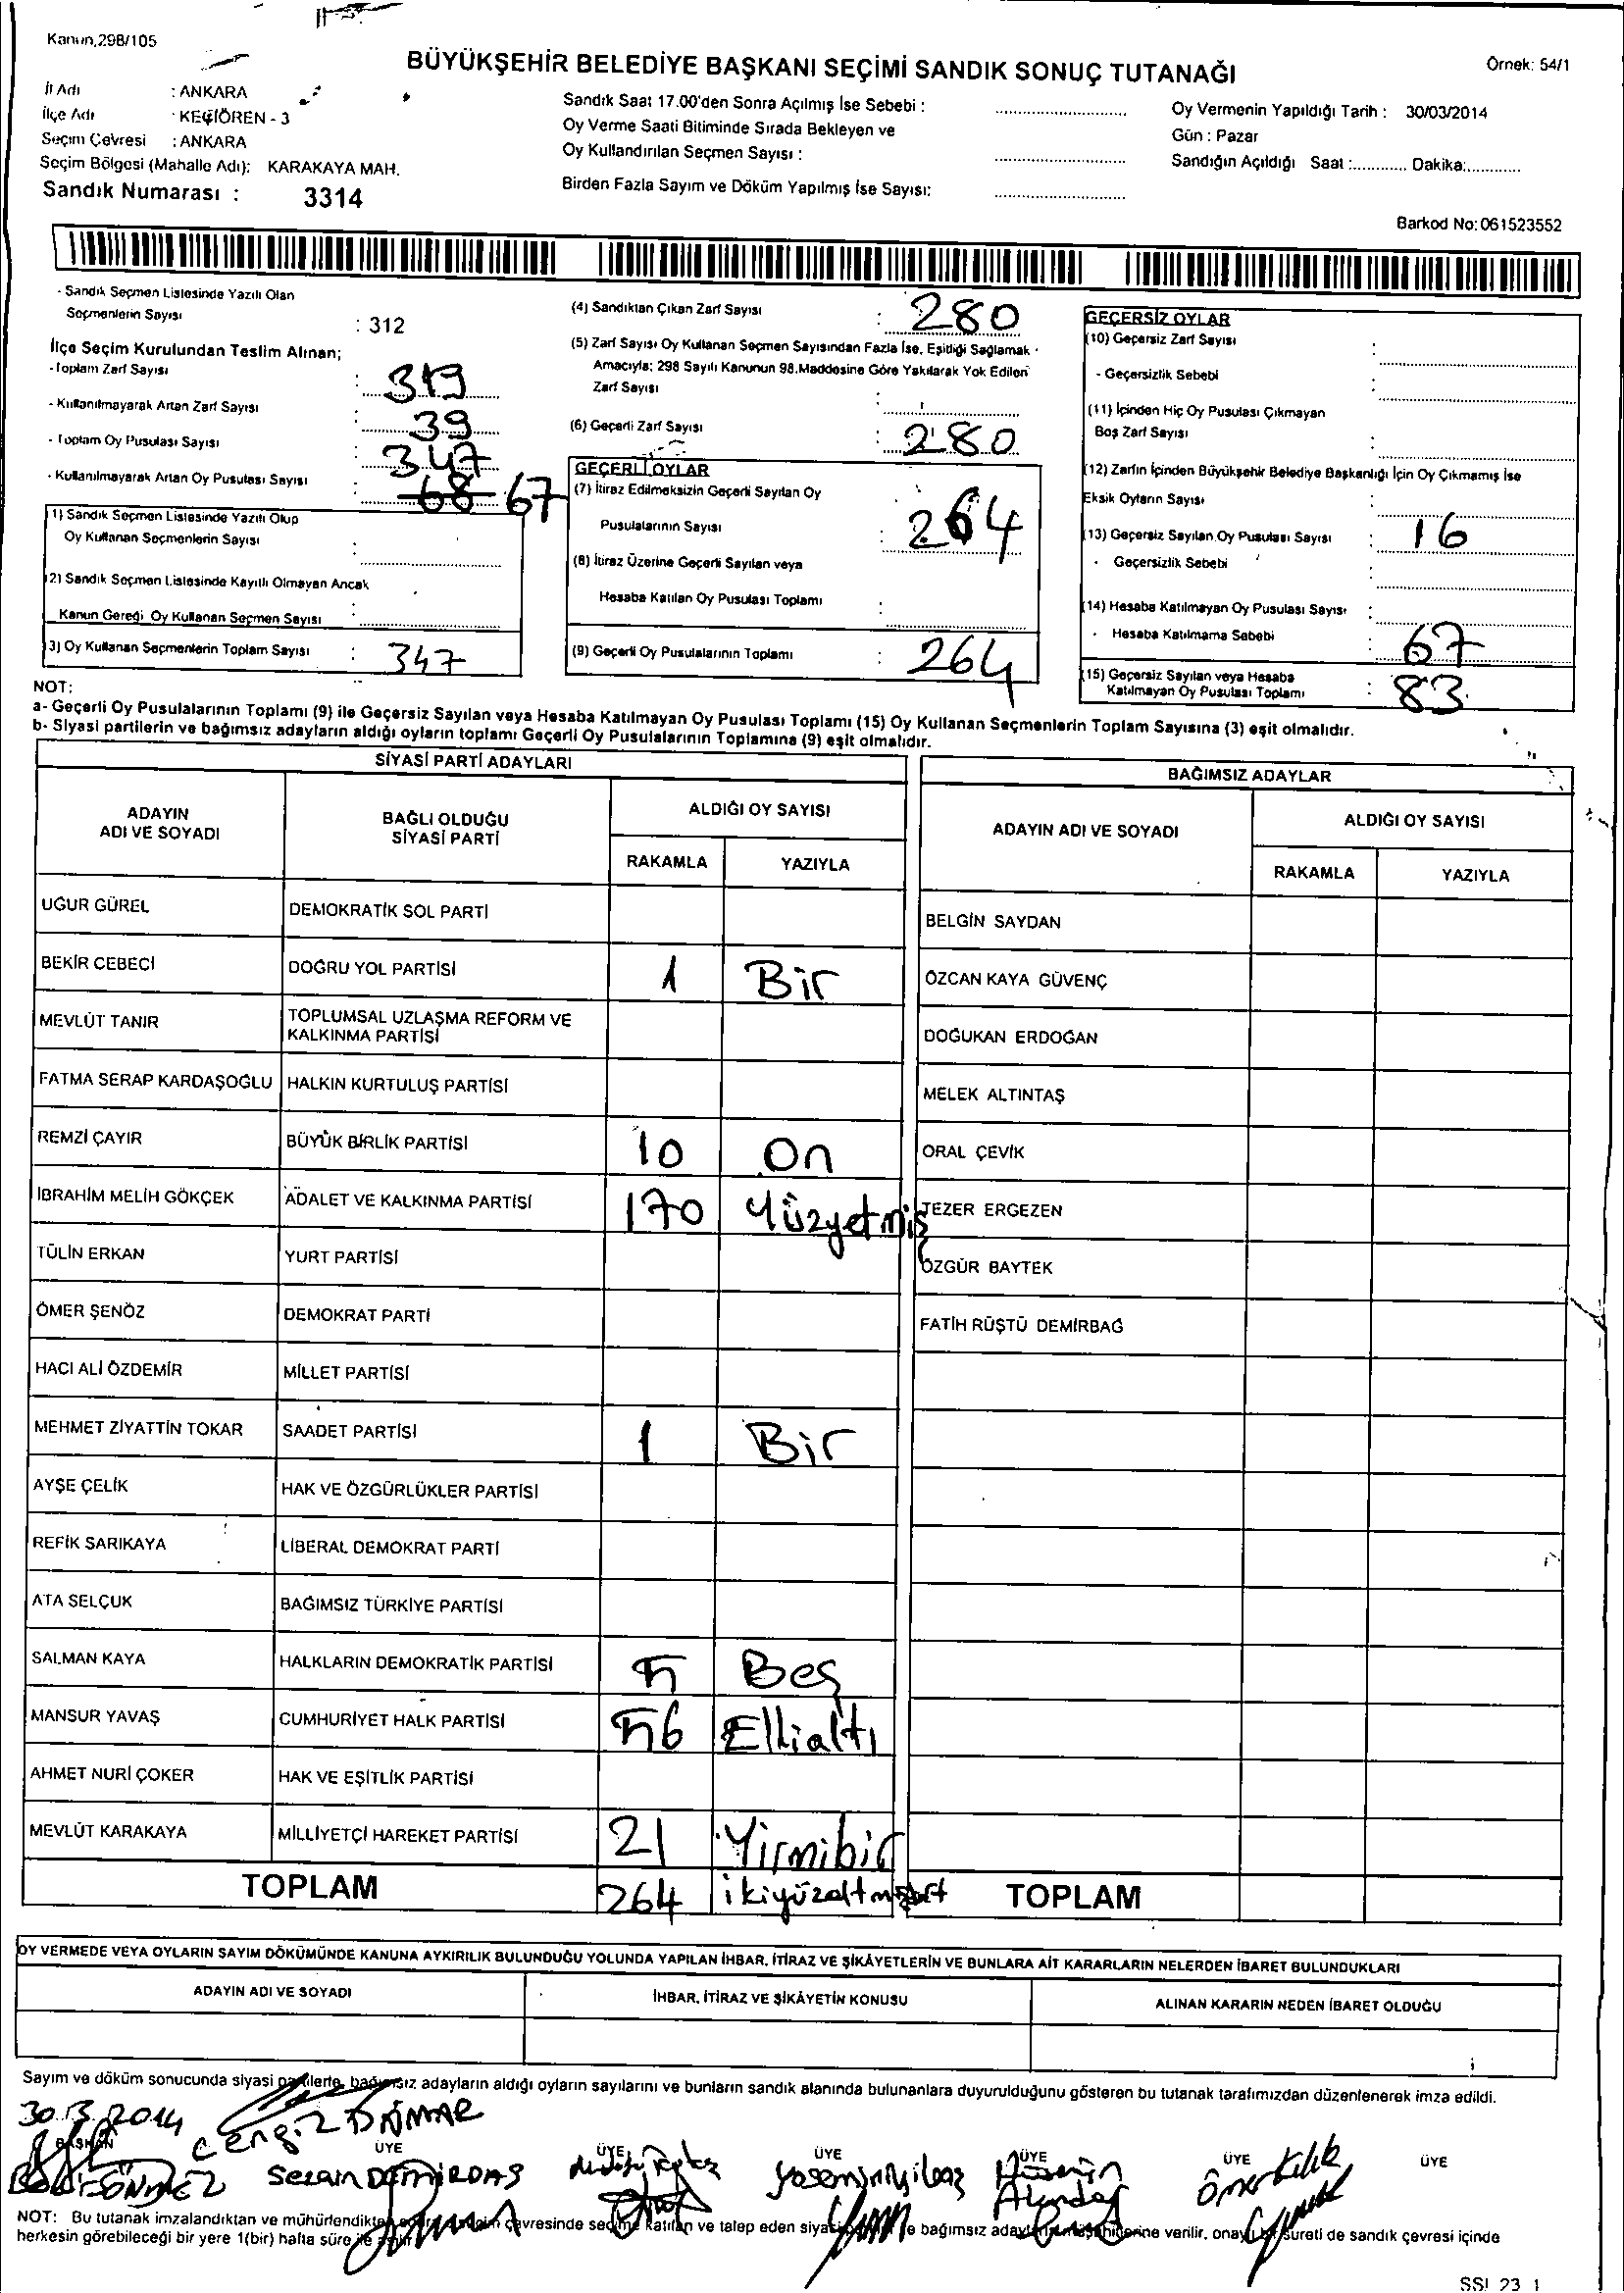 Kanun,298/105
BÜYÜKŞEHİR BELEDİYE BAŞKANI SEÇİMİ SANDIK SONUÇ TUTANAĞI
Örnek: 54/1
İl Adı : ANKARA
İlçe Adı : KEÇİÖREN - 3
Seçim Çevresi : ANKARA
Seçim Bölgesi (Mahalle Adı): KARAKAYA MAH.
Sandık Numarası : 3314
Sandık Saat 17.00'den Sonra Açılmış İse Sebebi :
Oy Verme Saati Bitiminde Sırada Bekleyen ve
Oy Kullandırılan Seçmen Sayısı :
Birden Fazla Sayım ve Döküm Yapılmış İse Sayısı:
Oy Vermenin Yapıldığı Tarih : 30/03/2014
Gün : Pazar
Sandığın Açıldığı Saat :............ Dakika:............
Barkod No: 061523552
- Sandık Seçmen Listesinde Yazılı Olan
Seçmenlerin Sayısı : 312
İlçe Seçim Kurulundan Teslim Alınan;
- Toplam Zarf Sayısı : 319
- Kullanılmayarak Artan Zarf Sayısı : 39
- Toplam Oy Pusulası Sayısı : 347
- Kullanılmayarak Artan Oy Pusulası Sayısı : 68 67
1) Sandık Seçmen Listesinde Yazılı Olup
Oy Kullanan Seçmenlerin Sayısı :
2) Sandık Seçmen Listesinde Kayıtlı Olmayan Ancak
Kanun Gereği Oy Kullanan Seçmen Sayısı :
3) Oy Kullanan Seçmenlerin Toplam Sayısı : 347
(4) Sandıktan Çıkan Zarf Sayısı : 280
(5) Zarf Sayısı Oy Kullanan Seçmen Sayısından Fazla İse, Eşitliği Sağlamak
Amacıyla; 298 Sayılı Kanunun 98.Maddesine Göre Yakılarak Yok Edilen
Zarf Sayısı :
(6) Geçerli Zarf Sayısı : 280
GEÇERLİ OYLAR
(7) İtiraz Edilmeksizin Geçerli Sayılan Oy
Pusulalarının Sayısı : 264
(8) İtiraz Üzerine Geçerli Sayılan veya
Hesaba Katılan Oy Pusulası Toplamı :
(9) Geçerli Oy Pusulalarının Toplamı : 264
GEÇERSİZ OYLAR
(10) Geçersiz Zarf Sayısı :
- Geçersizlik Sebebi :
(11) İçinden Hiç Oy Pusulası Çıkmayan
Boş Zarf Sayısı :
(12) Zarfın İçinden Büyükşehir Belediye Başkanlığı İçin Oy Çıkmamış İse
Eksik Oyların Sayısı :
(13) Geçersiz Sayılan Oy Pusulası Sayısı : 16
- Geçersizlik Sebebi :
(14) Hesaba Katılmayan Oy Pusulası Sayısı :
- Hesaba Katılmama Sebebi : 67
(15) Geçersiz Sayılan veya Hesaba
Katılmayan Oy Pusulası Toplamı : 83
NOT:
a- Geçerli Oy Pusulalarının Toplamı (9) ile Geçersiz Sayılan veya Hesaba Katılmayan Oy Pusulası Toplamı (15) Oy Kullanan Seçmenlerin Toplam Sayısına (3) eşit olmalıdır.
b- Siyasi partilerin ve bağımsız adayların aldığı oyların toplamı Geçerli Oy Pusulalarının Toplamına (9) eşit olmalıdır.
SİYASİ PARTİ ADAYLARI
ADAYIN ADI VE SOYADI BAĞLI OLDUĞU SİYASİ PARTİ ALDIĞI OY SAYISI
RAKAMLA YAZIYLA
UĞUR GÜREL DEMOKRATİK SOL PARTİ
BEKİR CEBECİ DOĞRU YOL PARTİSİ 1 Bir
MEVLÜT TANIR TOPLUMSAL UZLAŞMA REFORM VE KALKINMA PARTİSİ
FATMA SERAP KARDAŞOĞLU HALKIN KURTULUŞ PARTİSİ
REMZİ ÇAYIR BÜYÜK BİRLİK PARTİSİ 10 On
İBRAHİM MELİH GÖKÇEK ADALET VE KALKINMA PARTİSİ 170 Yüzyetmiş
TÜLİN ERKAN YURT PARTİSİ
ÖMER ŞENÖZ DEMOKRAT PARTİ
HACI ALİ ÖZDEMİR MİLLET PARTİSİ
MEHMET ZİYATTİN TOKAR SAADET PARTİSİ 1 Bir
AYŞE ÇELİK HAK VE ÖZGÜRLÜKLER PARTİSİ
REFİK SARIKAYA LİBERAL DEMOKRAT PARTİ
ATA SELÇUK BAĞIMSIZ TÜRKİYE PARTİSİ
SALMAN KAYA HALKLARIN DEMOKRATİK PARTİSİ 5 Beş
MANSUR YAVAŞ CUMHURİYET HALK PARTİSİ 56 Ellialtı
AHMET NURİ ÇOKER HAK VE EŞİTLİK PARTİSİ
MEVLÜT KARAKAYA MİLLİYETÇİ HAREKET PARTİSİ 21 Yirmibir
TOPLAM 264 ikiyüzaltmışdört
BAĞIMSIZ ADAYLAR
ADAYIN ADI VE SOYADI ALDIĞI OY SAYISI
RAKAMLA YAZIYLA
BELGİN SAYDAN
ÖZCAN KAYA GÜVENÇ
DOĞUKAN ERDOĞAN
MELEK ALTINTAŞ
ORAL ÇEVİK
TEZER ERGEZEN
ÖZGÜR BAYTEK
FATİH RÜŞTÜ DEMİRBAĞ
TOPLAM
OY VERMEDE VEYA OYLARIN SAYIM DÖKÜMÜNDE KANUNA AYKIRILIK BULUNDUĞU YOLUNDA YAPILAN İHBAR, İTİRAZ VE ŞİKÂYETLERİN VE BUNLARA AİT KARARLARIN NELERDEN İBARET BULUNDUKLARI
ADAYIN ADI VE SOYADI İHBAR, İTİRAZ VE ŞİKÂYETİN KONUSU ALINAN KARARIN NEDEN İBARET OLDUĞU
Sayım ve döküm sonucunda siyasi partilerle, bağımsız adayların aldığı oyların sayılarını ve bunların sandık alanında bulunanlara duyurulduğunu gösteren bu tutanak tarafımızdan düzenlenerek imza edildi.
30.3.2014
BAŞKAN ÜYE ÜYE ÜYE ÜYE ÜYE ÜYE
Cengiz
Sezain DEMİRDAŞ
Yasemin
Hüseyin
Ömer Kılık
NOT: Bu tutanak imzalandıktan ve mühürlendikten sonra seçim çevresinde seçime katılan ve talep eden siyasi ve bağımsız adayların müşahitlerine verilir, onaylı bir sureti de sandık çevresi içinde
herkesin görebileceği bir yere 1(bir) hafta süre ile asılır.
SSI 23 1